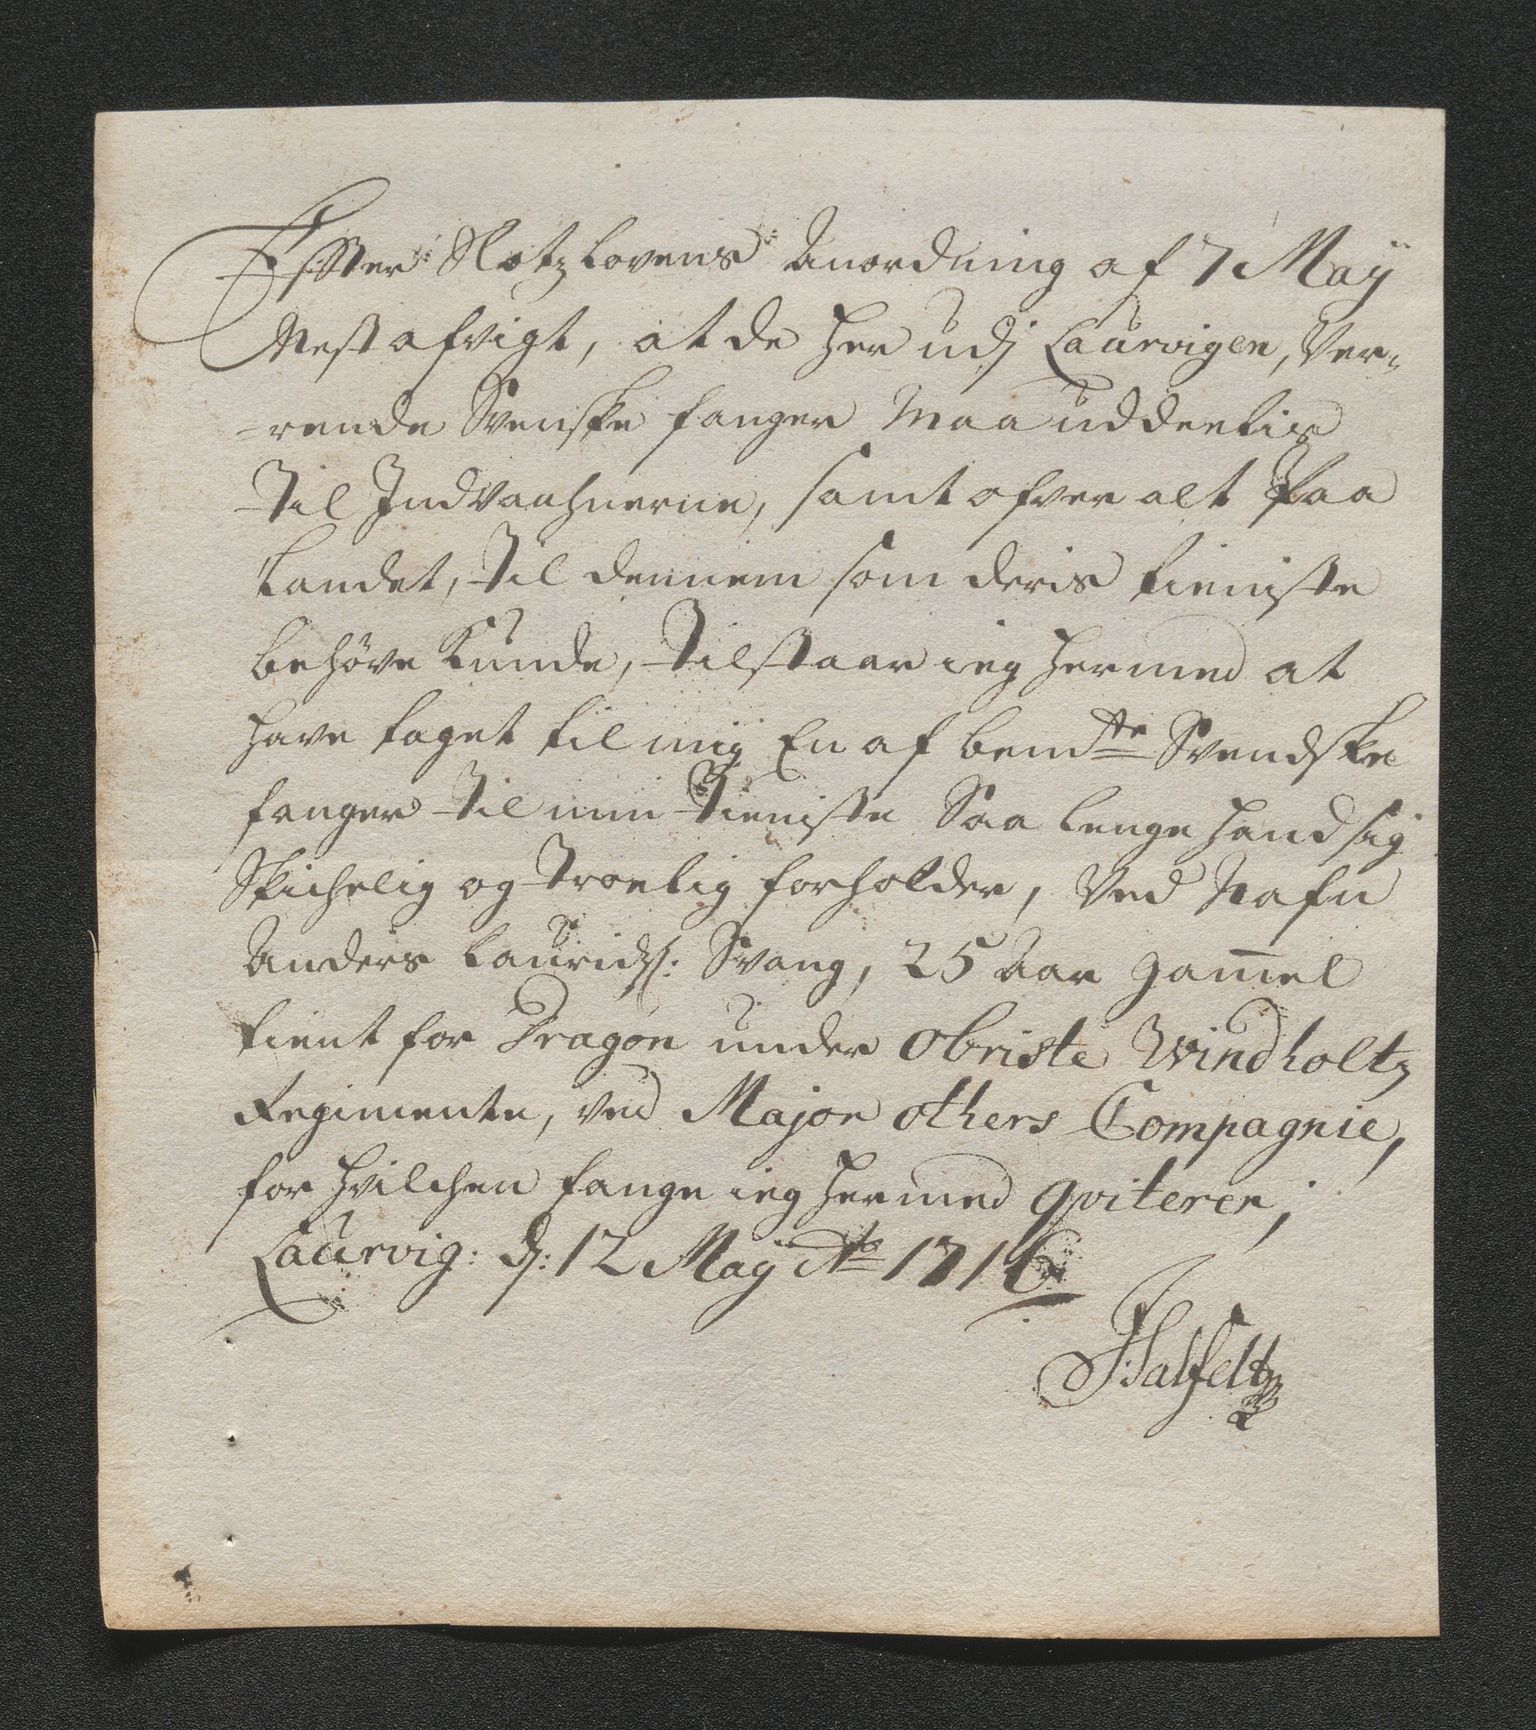 Effter Slotzlovens Anordning af 7 Maij
Nest afvigt, at de her udj Laurvigen, Ver-
-rende Svenske fanger Maa uddeelis
Til Indvaahnerne, samt ofver alt Paa
Landet, Til dennem som deris tieniste
behøve Kunde, Tilstaar ieg hermed at
have taget til mig En af bemte Svendske
fanger Til min Tieniste Saa lenge hand sig
Skichelig og Troelig forholder, Ved Nafn
Anders Lauridß: Svang, 25 Aar gamel
tient for Dragon under Obriste Windholtz
Regimente, ved Major Others Compagnie,
for hvilchen fange ieg hermed qviterer;
Laurvig: dj: 12 Maij Ao 1716
JHalfeltz